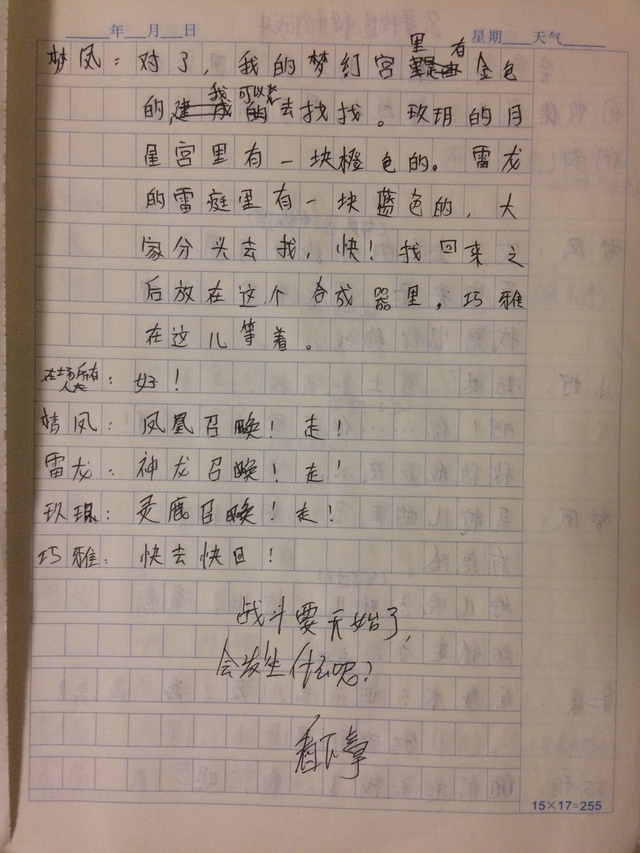 年 月 日 星期 天气
梦凤：对了，我的梦幻宫里有金色
的，我可以去找找。玖玥的月
星宫里有一块橙色的。雷龙
的雷庭里有一块蓝色的，大
家分头去找，快！找回来之
后放在这个合成器里，巧雅
在这儿等着。
在场所有人：好！
梦凤：凤凰召唤！走！
雷龙：神龙召唤！走！
玖玥：灵鹿召唤！走！
巧雅：快去快回！
战斗要开始了，
会发生什么呢？
看下章
15×17=255